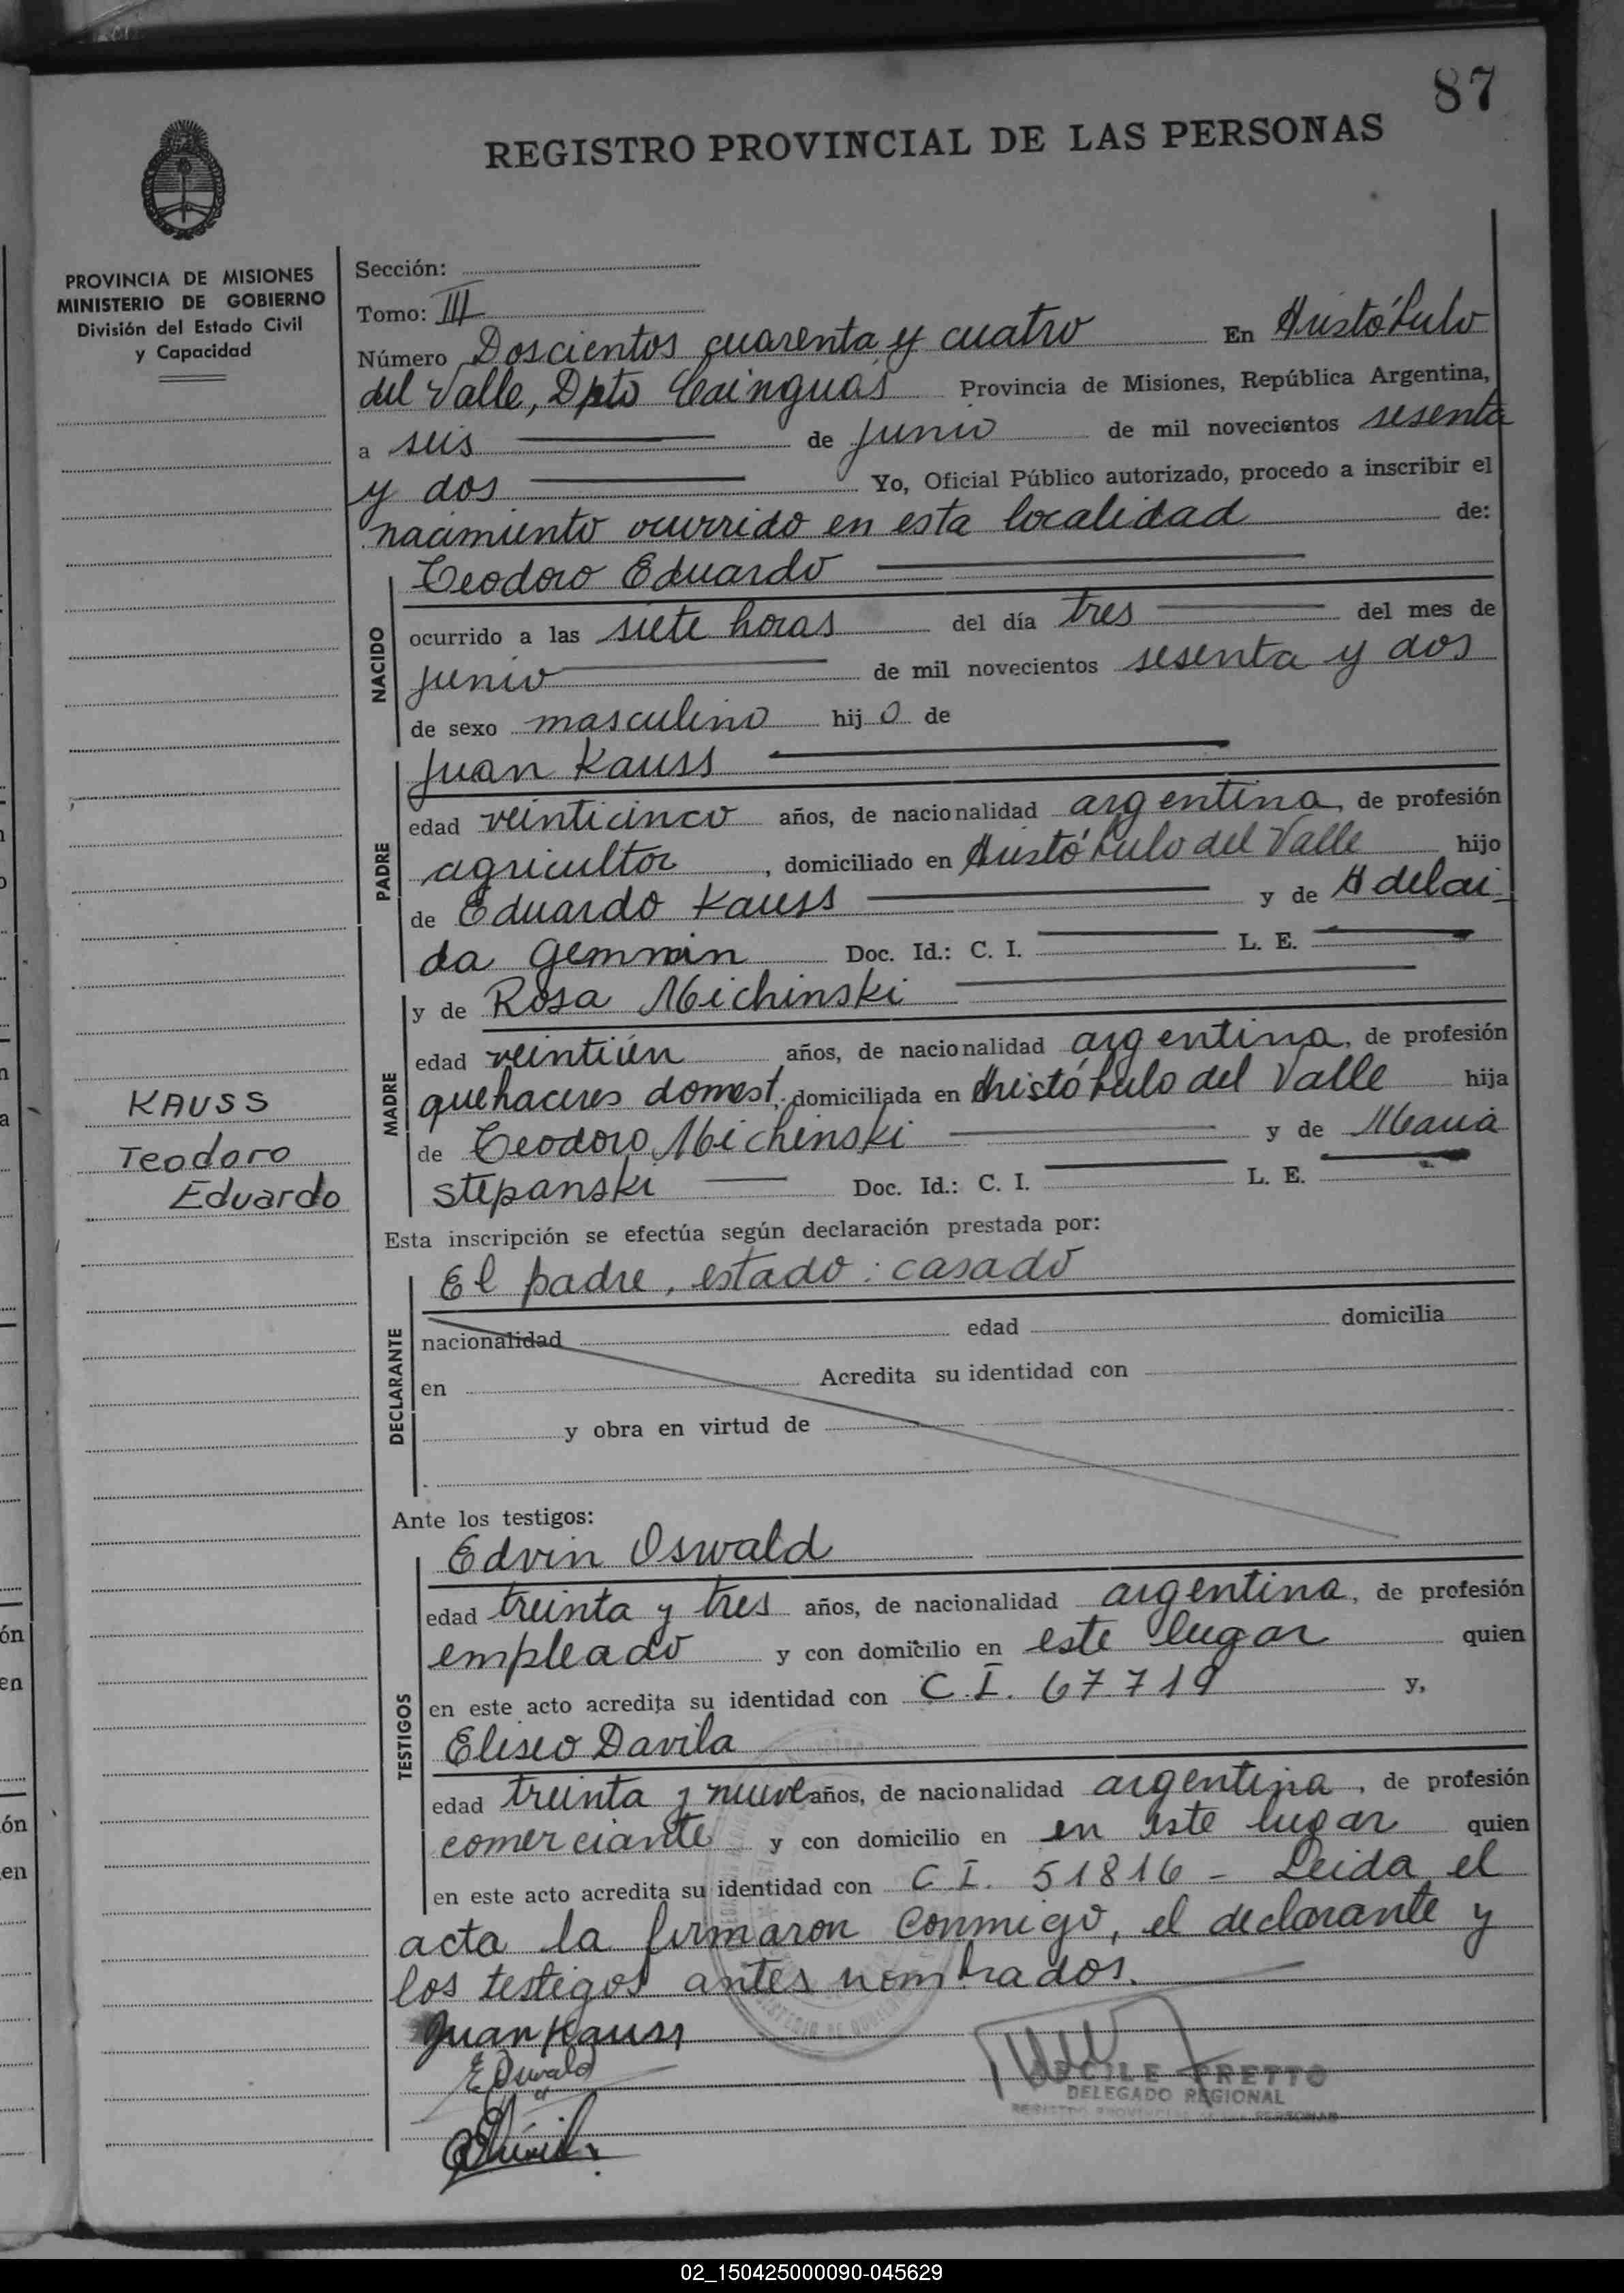 87
REGISTRO PROVINCIAL DE LAS PERSONAS
PROVINCIA DE MISIONES
MINISTERIO DE GOBIERNO
División del Estado Civil
y Capacidad
Sección:
Tomo: III
Número Doscientos cuarenta y cuatro En Aristóbulo
del Valle, Dpto Cainguás Provincia de Misiones, República Argentina,
a seis de junio de mil novecientos sesenta
y dos Yo, Oficial Público autorizado, procedo a inscribir el
nacimiento ocurrido en esta localidad de:
NACIDO
Teodoro Eduardo
ocurrido a las siete horas del día tres del mes de
junio de mil novecientos sesenta y dos
de sexo masculino hij o de
PADRE
Juan Kauss
edad veinticinco años, de nacionalidad argentina, de profesión
agricultor, domiciliado en Aristóbulo del Valle hijo
de Eduardo Kauss y de Adelai
da Gemmin Doc. Id.: C. I. L. E.
MADRE
y de Rosa Michinski
edad veintiún años, de nacionalidad argentina, de profesión
quehaceres domest. domiciliada en Aristóbulo del Valle hija
de Teodoro Michinski y de María
stepanski Doc. Id.: C. I. L. E.
KAUSS
Teodoro
Eduardo
Esta inscripción se efectúa según declaración prestada por:
DECLARANTE
El padre, estado: casado
nacionalidad edad domicilia
en Acredita su identidad con
y obra en virtud de
Ante los testigos:
TESTIGOS
Edvin Oswald
edad treinta y tres años, de nacionalidad argentina, de profesión
empleado y con domicilio en este lugar quien
en este acto acredita su identidad con C.I. 67719 y,
Eliseo Davila
edad treinta y nueve años, de nacionalidad argentina, de profesión
comerciante y con domicilio en en este lugar quien
en este acto acredita su identidad con C I. 51816 - Leida el
acta la firmaron conmigo, el declarante y
los testigos antes nombrados.
Juan Kauss
E Oswald
PRETTO
DELEGADO REGIONAL
02_150425000090-045629